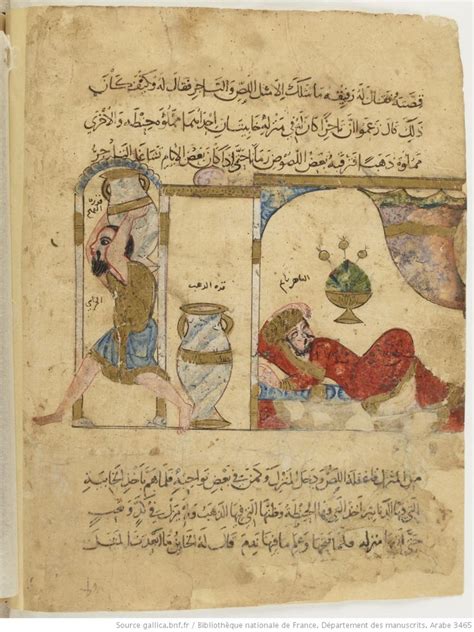 قصته فقال له رفيقه ما مثلك الا مثل اللص والتاجر فقال له وكيف كان
ذلك قال زعموا ان تاجرا كان في منزله خابيتان احداهما مملوة حنطه والاخرى
مملوة ذهبا فترقبه بعض اللصوص حتى اذا كان بعض الايام تشاغل التاجر
قدرة القمح
الحرامي
قدرة الذهب
التاجر نايم
المنزل فتغفله اللص ودخل المنزل وكمن في بعض نواحيه فلما هم باخذ الخابية
التي فيها الدنانير اخذ التي فيها الحنطة وظنها التي فيها الذهب ولم يزل في كد وتعب
حتى اتى بها منزله فلما فتحها وعلم ما فيها ندم قال له الخائن ما ابعدت المثل
Source gallica.bnf.fr / Bibliothèque nationale de France. Département des manuscrits. Arabe 3465